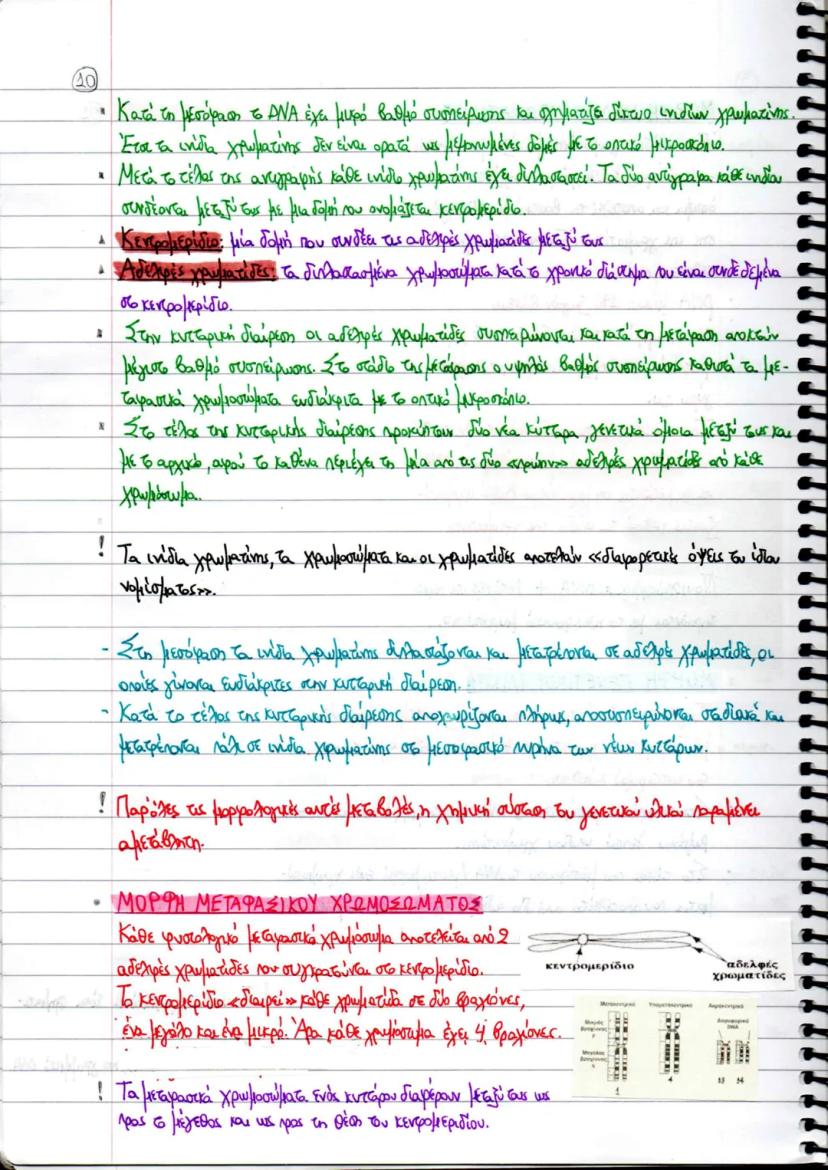 10
Κατά τη μεσόφαση το DNA έχει μικρό βαθμό συσπείρωσης και σχηματίζει δίκτυο ινιδίων χρωματίνης.
Έτσι τα ινίδια χρωματίνης δεν είναι ορατά ως μεμονωμένες δομές με το οπτικό μικροσκόπιο.
Μετά το τέλος της αντιγραφής κάθε ινίδιο χρωματίνης έχει διπλασιαστεί. Τα δύο αντίγραφα κάθε ινιδίου
συνδέονται μεταξύ τους με μια δομή που ονομάζεται κεντρομερίδιο.
Κεντρομερίδιο: μία δομή που συνδέει τις αδελφές χρωματίδες μεταξύ τους
Αδελφές χρωματίδες: τα διπλασιασμένα χρωμοσώματα κατά το χρονικό διάστημα που είναι συνδεδεμένα
στο κεντρομερίδιο.
Στην κυτταρική διαίρεση οι αδελφές χρωματίδες συσπειρώνονται και κατά τη μετάφαση αποκτούν
μέγιστο βαθμό συσπείρωσης. Στο στάδιο της μετάφασης ο υψηλός βαθμός συσπείρωσης καθιστά τα με-
ταφασικά χρωμοσώματα ευδιάκριτα με το οπτικό μικροσκόπιο.
Στο τέλος της κυτταρικής διαίρεσης προκύπτουν δύο νέα κύτταρα, γενετικά όμοια μεταξύ τους και
με το αρχικό, αφού το καθένα περιέχει τη μία από τις δύο «πρώην» αδελφές χρωματίδες από κάθε
χρωμόσωμα.
! Τα ινίδια χρωματίνης, τα χρωμοσώματα και οι χρωματίδες αποτελούν «διαφορετικές όψεις του ίδιου
νομίσματος».
- Στη μεσόφαση τα ινίδια χρωματίνης διπλασιάζονται και μετατρέπονται σε αδελφές χρωματίδες, οι
οποίες γίνονται ευδιάκριτες στην κυτταρική διαίρεση.
- Κατά το τέλος της κυτταρικής διαίρεσης αποχωρίζονται πλήρως, αποσυσπειρώνονται σταδιακά και
μετατρέπονται πάλι σε ινίδια χρωματίνης στο μεσοφασικό πυρήνα των νέων κυττάρων.
! Παρ'όλες τις μορφολογικές αυτές μεταβολές, η χημική σύσταση του γενετικού υλικού παραμένει
αμετάβλητη.
ΜΟΡΦΗ ΜΕΤΑΦΑΣΙΚΟΥ ΧΡΩΜΟΣΩΜΑΤΟΣ
Κάθε φυσιολογικό μεταφασικό χρωμόσωμα αποτελείται από 2
αδελφές χρωματίδες που συγκρατούνται στο κεντρομερίδιο.
Το κεντρομερίδιο «διαιρεί» κάθε χρωματίδα σε δύο βραχίονες,
ένα μεγάλο και ένα μικρό. Άρα κάθε χρωμόσωμα έχει 4 βραχίονες.
κεντρομερίδιο
αδελφές
χρωματίδες
Μετακεντρικό Υπομετακεντρικό Ακροκεντρικό
Δορυφορικό
DNA
Μικρός
βραχίονας
Μεγάλος
βραχίονας
1 4 13 14
! Τα μεταφασικά χρωμοσώματα ενός κυττάρου διαφέρουν μεταξύ τους ως
προς το μέγεθος και ως προς τη θέση του κεντρομεριδίου.